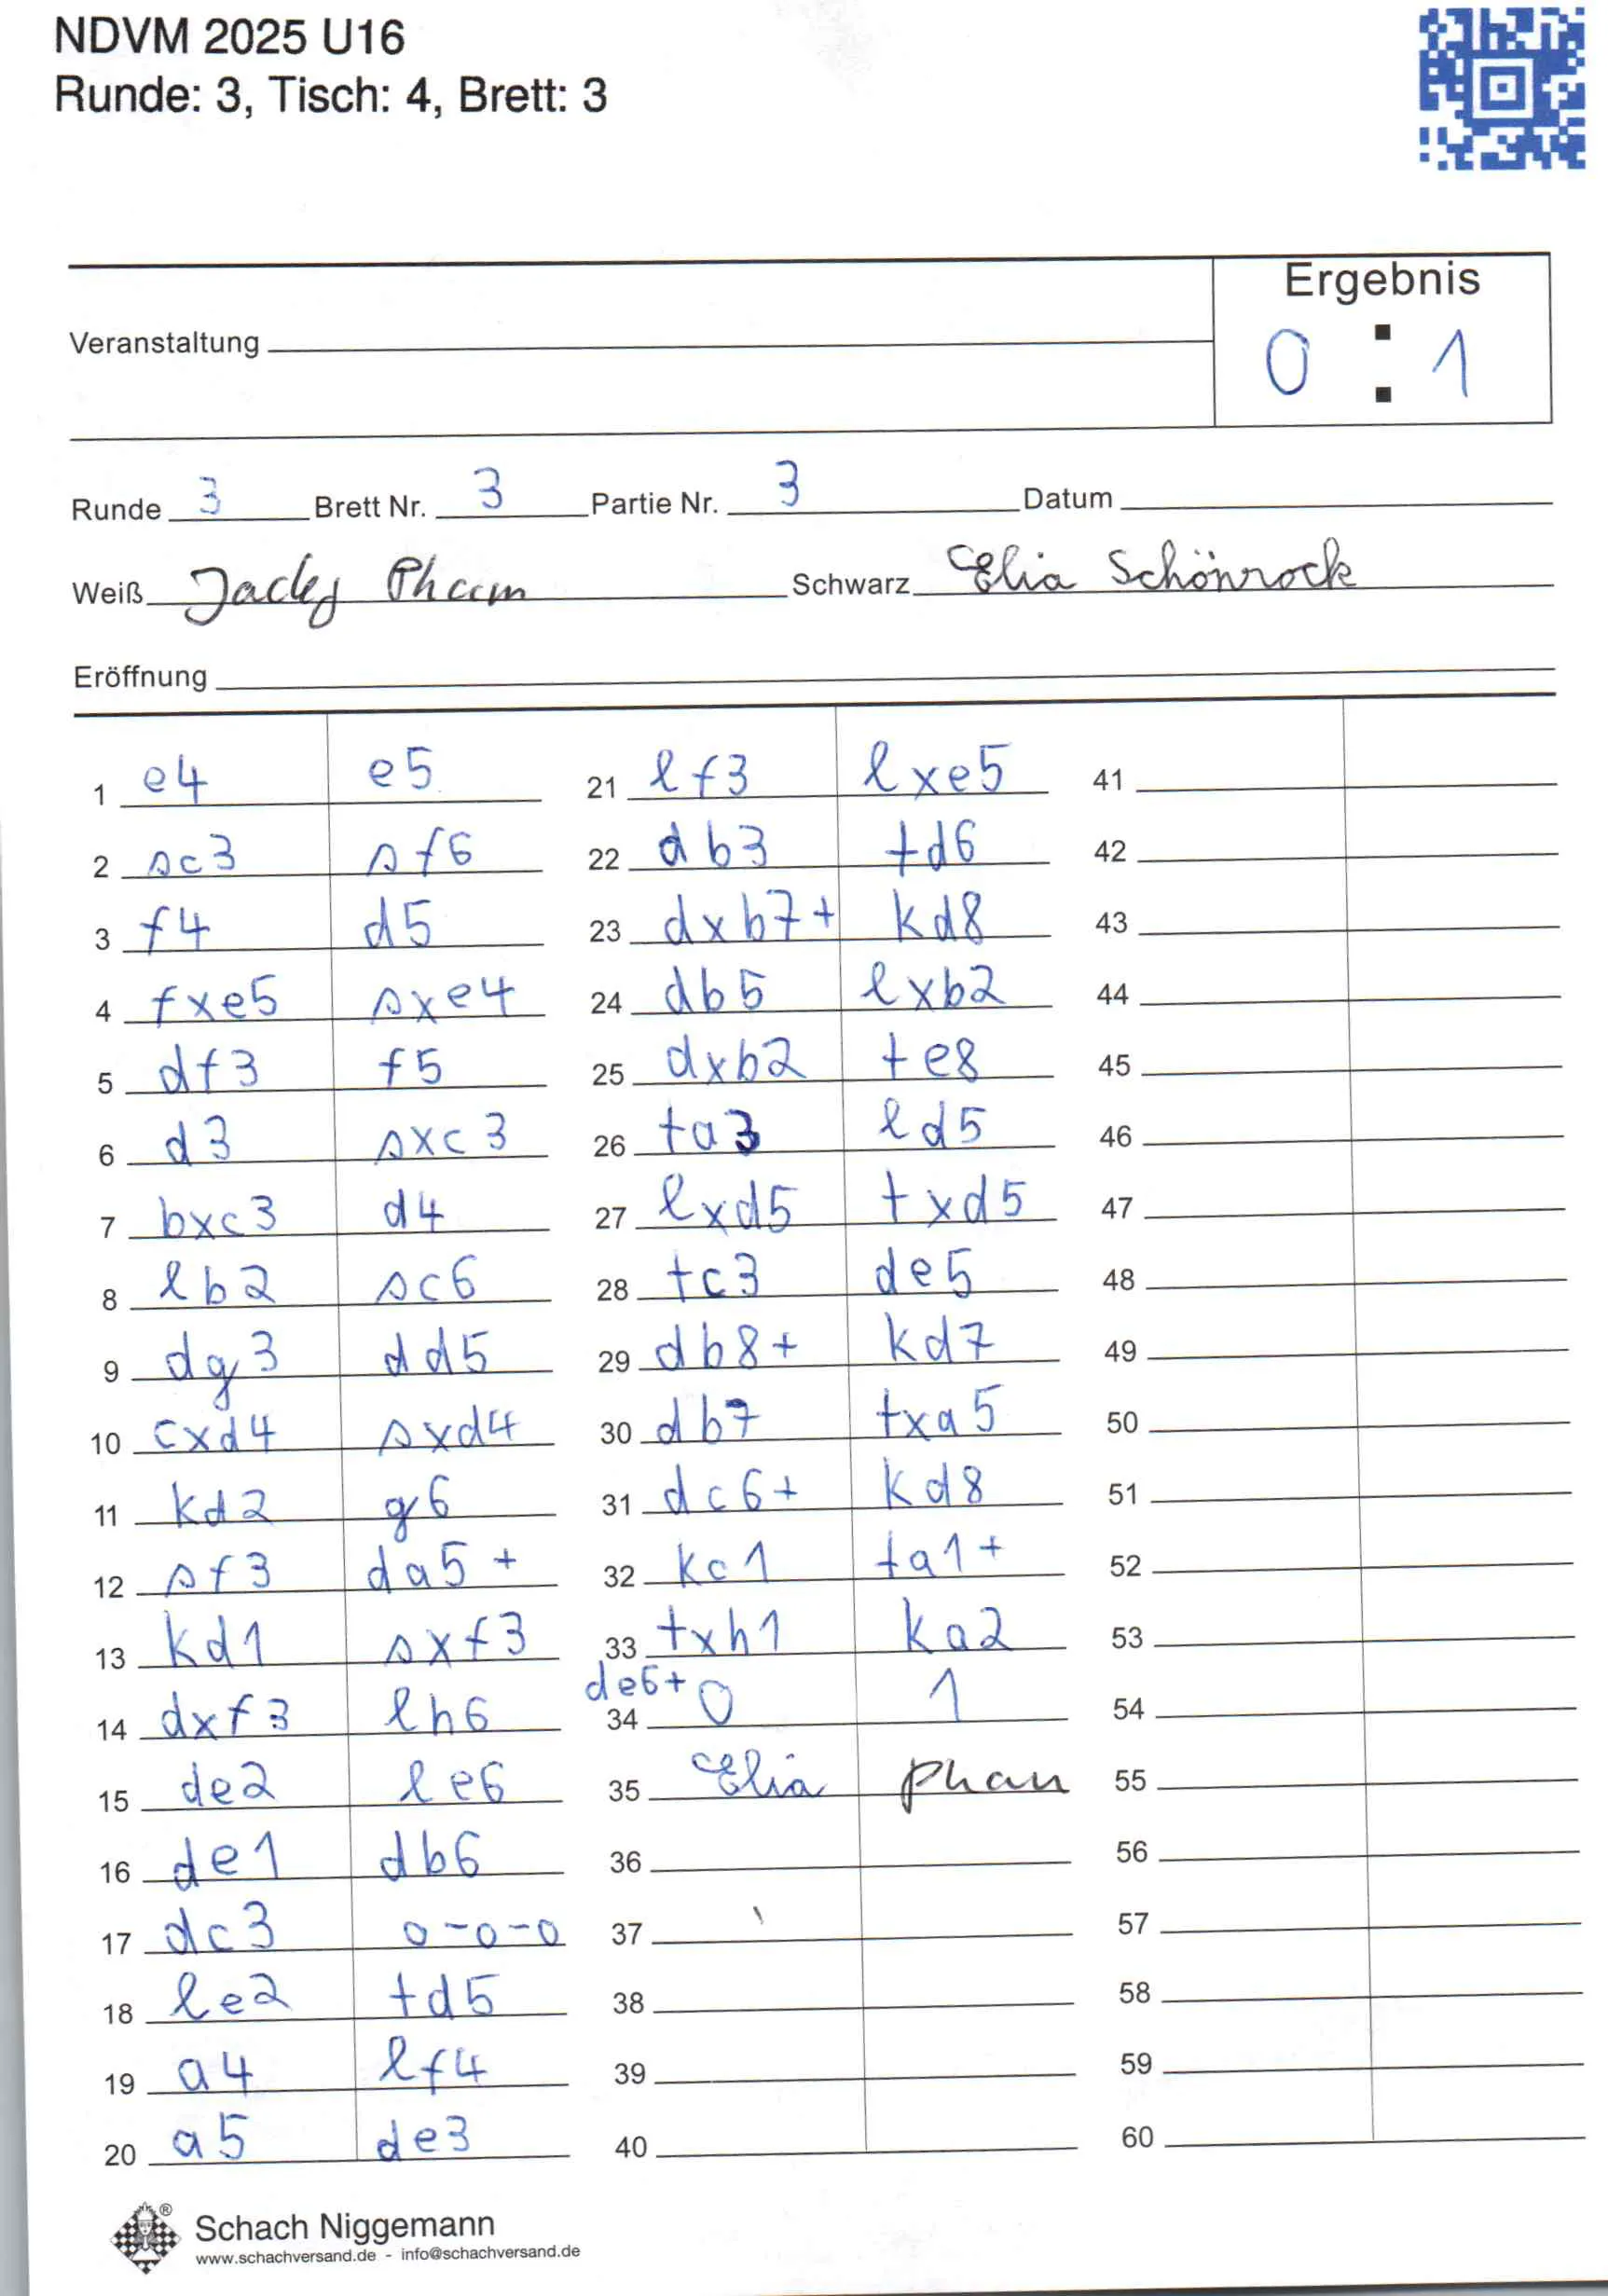 NDVM 2025 U16
Runde: 3, Tisch: 4, Brett: 3
Ergebnis
Veranstaltung
0 : 1
Runde 3 Brett Nr. 3 Partie Nr. 3 Datum
Weiß Jacky Pham Schwarz Elia Schönrock
Eröffnung
1 e4 e5 21 lf3 lxe5 41
2 sc3 sf6 22 db3 td6 42
3 f4 d5 23 dxb7+ kd8 43
4 fxe5 sxe4 24 db5 lxb2 44
5 df3 f5 25 dxb2 te8 45
6 d3 sxc3 26 ta3 ld5 46
7 bxc3 d4 27 lxd5 txd5 47
8 lb2 sc6 28 tc3 de5 48
9 dg3 dd5 29 db8+ kd7 49
10 cxd4 sxd4 30 db7 txa5 50
11 kd2 g6 31 dc6+ kd8 51
12 sf3 da5+ 32 kc1 ta1+ 52
13 kd1 sxf3 33 txh1 ka2 53
14 dxf3 lh6 34 de6+ 0 1 54
15 de2 le6 35 Elia Phan 55
16 de1 db6 36 56
17 dc3 0-0-0 37 57
18 le2 td5 38 58
19 a4 lf4 39 59
20 a5 de3 40 60
Schach Niggemann
www.schachversand.de - info@schachversand.de